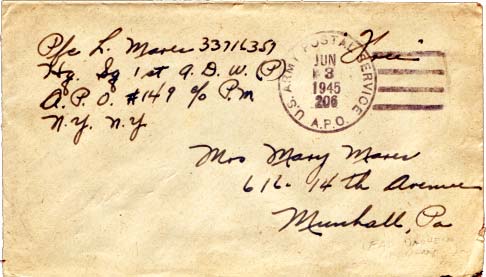 Pfc L. Mares 33716357
Hq. Sq 1st A.D.W. (P)
A.P.O. #149 c/o P.M
N.Y. N.Y
Free
U.S. ARMY POSTAL SERVICE
JUN
3
1945
206
A.P.O.
Mrs Mary Mares
616- 14th Avenue
Munhall, Pa